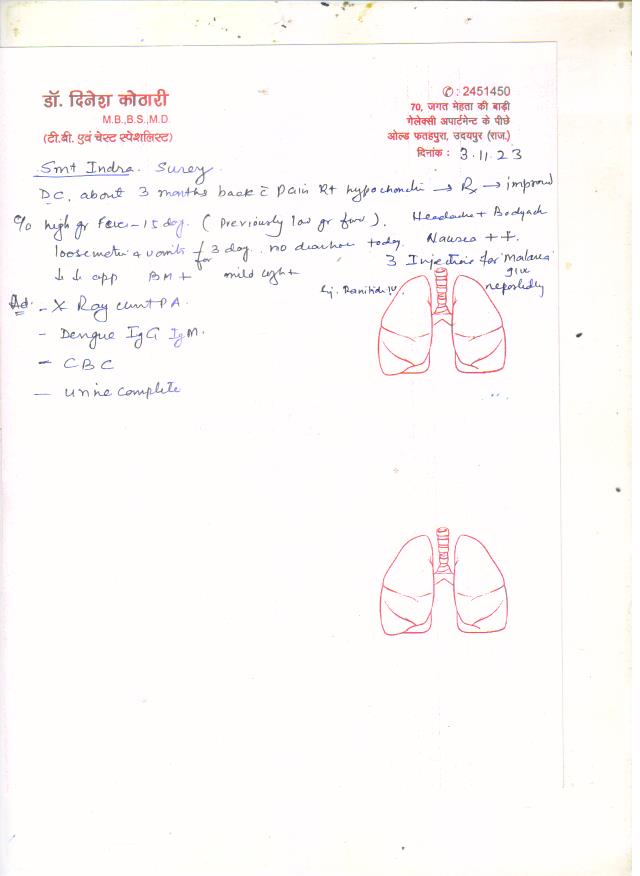 डॉ. दिनेश कोठारी
M.B.,B.S.,M.D.
(टी.बी. एवं चेस्ट स्पेशलिस्ट)
✆ : 2451450
70, जगत मेहता की बाड़ी
गेलेक्सी अपार्टमेन्ट के पीछे
ओल्ड फतहपुरा, उदयपुर (राज.)
दिनांक : 3.11.23
Smt Indra.
about 3 months back c̄ Pain Rt hypochondri → Rx → improved
c/o high gr Fever - 15 day. (Previously low gr fever). Headache + Bodyache
loose motion & vomits for 3 day. no diarrhoea today. Nausea ++.
↓ ↓ app BM + mild cough + 3 Injections for Malaria give reportedly
Inj. Ranitidin IV.
Ad. - X Ray chest PA.
- Dengue IgG IgM.
- CBC
- Urine complete